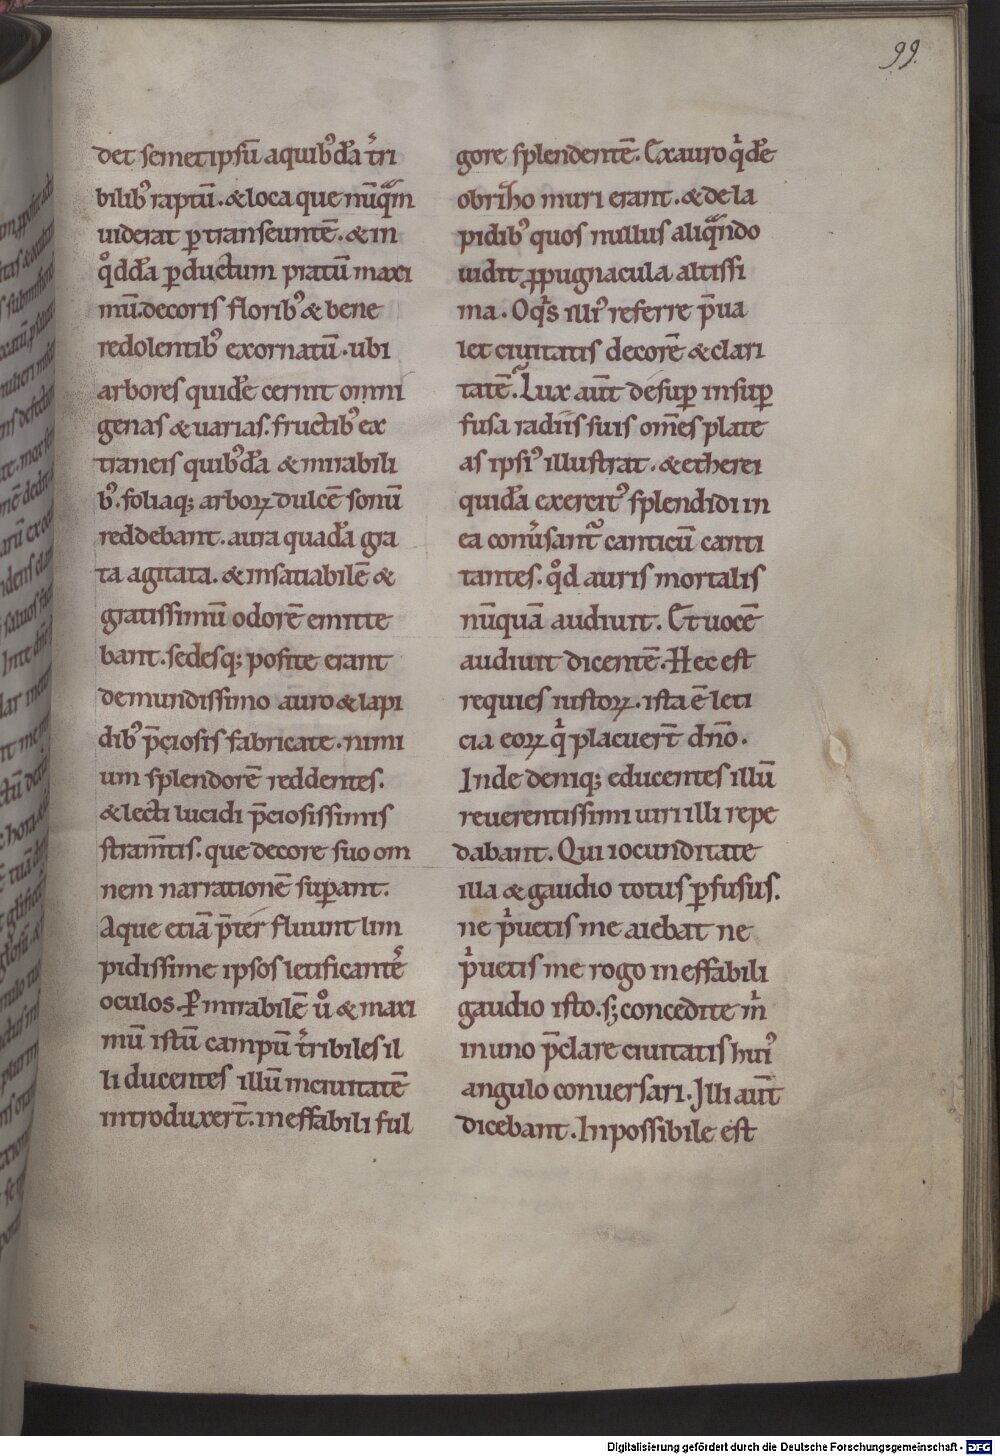 99.
det semetipsū aquibꝰdā t̄ri
bilibꝰ raptū. & loca que nūqͣm
uiderat ꝑtranseuntē. & in
qͦddā ꝑductum pratū maxi
mū. decoris floribꝰ & bene
redolentibꝰ exornatū. ubi
arbores quidē cernit omni
genas & uarias. fructibꝰ ex
traneis quibꝰdā & mirabili
bꝰ. foliaqꝫ arboꝝ dulcē sonū
reddebant. aura quadā gra
ta agitata. & insatiabilē &
gratissimū odorē emitte
bant. sedesqꝫ posite erant
demundissimo auro & lapi
dibꝰ p̄ciosis fabricate. nimi
um splendorē reddentes.
& lecti lucidi p̄ciosissimis
stram̄tis. que decore suo om
nem narrationē suꝑant.
Aque etiā p̄ter fluunt lim
pidissime ipsos letificantē
oculos. Ꝑ mirabilē uͦ & maxi
mū istū campū t̄ribiles il
li ducentes illū inciuitatē
introduxer̄t. ineffabili ful
gore splendentē. Ex auro qͥdē
obrizo muri erant. & de la
pidibꝰ quos nullus aliqͣndo
uidit ꝓpugnacula altissi
ma. O qͥs illiꝰ referre p̄ua
let ciuitatis decorē & clari
tatē. Lux aūt desuꝑ insuꝑ
fusa radiis suis om̄es plate
as ipsiꝰ illustrat. & etherei
quidā exercitꝰ splendidi in
ea conūsant̃ canticū canti
tantes. qͦd auris mortalis
nūquā audiuit. Et uocē
audiuit dicentē. Hec est
requies iustoꝝ. ista ē leti
cia eoꝝ qͥ placuer̄t dn̄o.
Inde deniqꝫ educentes illū
reuerentissimi uiri illi repe
dabant. Qui iocunditate
illa & gaudio totus ꝑfusus.
ne pͥuetis me aiebat ne
pͥuetis me rogo ineffabili
gaudio isto. sꝫ concedite mͥ
in uno p̄clare ciuitatis huiꝰ
angulo conuersari. Illi aūt
dicebant. Inpossibile est
Digitalisierung gefördert durch die Deutsche Forschungsgemeinschaft - DFG